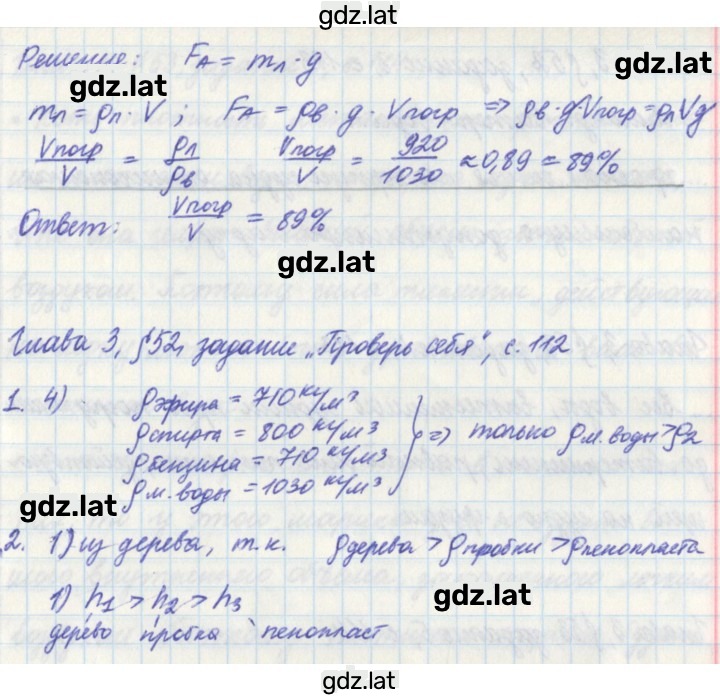 gdz.lat
Решение: Fᴀ = mл·g
gdz.lat
mл = ρл·V; Fᴀ = ρв·g·Vпогр ⇒ ρв·g·Vпогр = ρлVg
Vпогр/V = ρл/ρв Vпогр/V = 920/1030 ≈ 0,89 = 89%
Ответ: Vпогр/V = 89%
gdz.lat
Глава 3, §52, задание „Проверь себя", с. 112
1. 4) ρэфира = 710 кг/м³
ρспирта = 800 кг/м³
ρбензина = 710 кг/м³
ρм.воды = 1030 кг/м³
} ⇒ только ρм.воды > ρ2
gdz.lat
2. 1) из дерева, т.к. ρдерева > ρпробки > ρпенопласта
gdz.lat
1) h1 > h2 > h3
дерево пробка пенопласт
gdz.lat